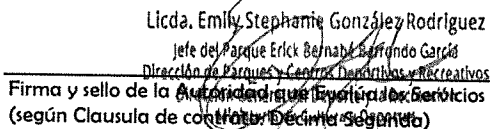 Licda. Emily Stephanie González Rodríguez
Jefe del Parque Erick Bernabé Barrondo García
Dirección de Parques y Centros Deportivos y Recreativos
Firma y sello de la Autoridad que Evalúa los Servicios
(según Clausula de contrato: Décima Segunda)